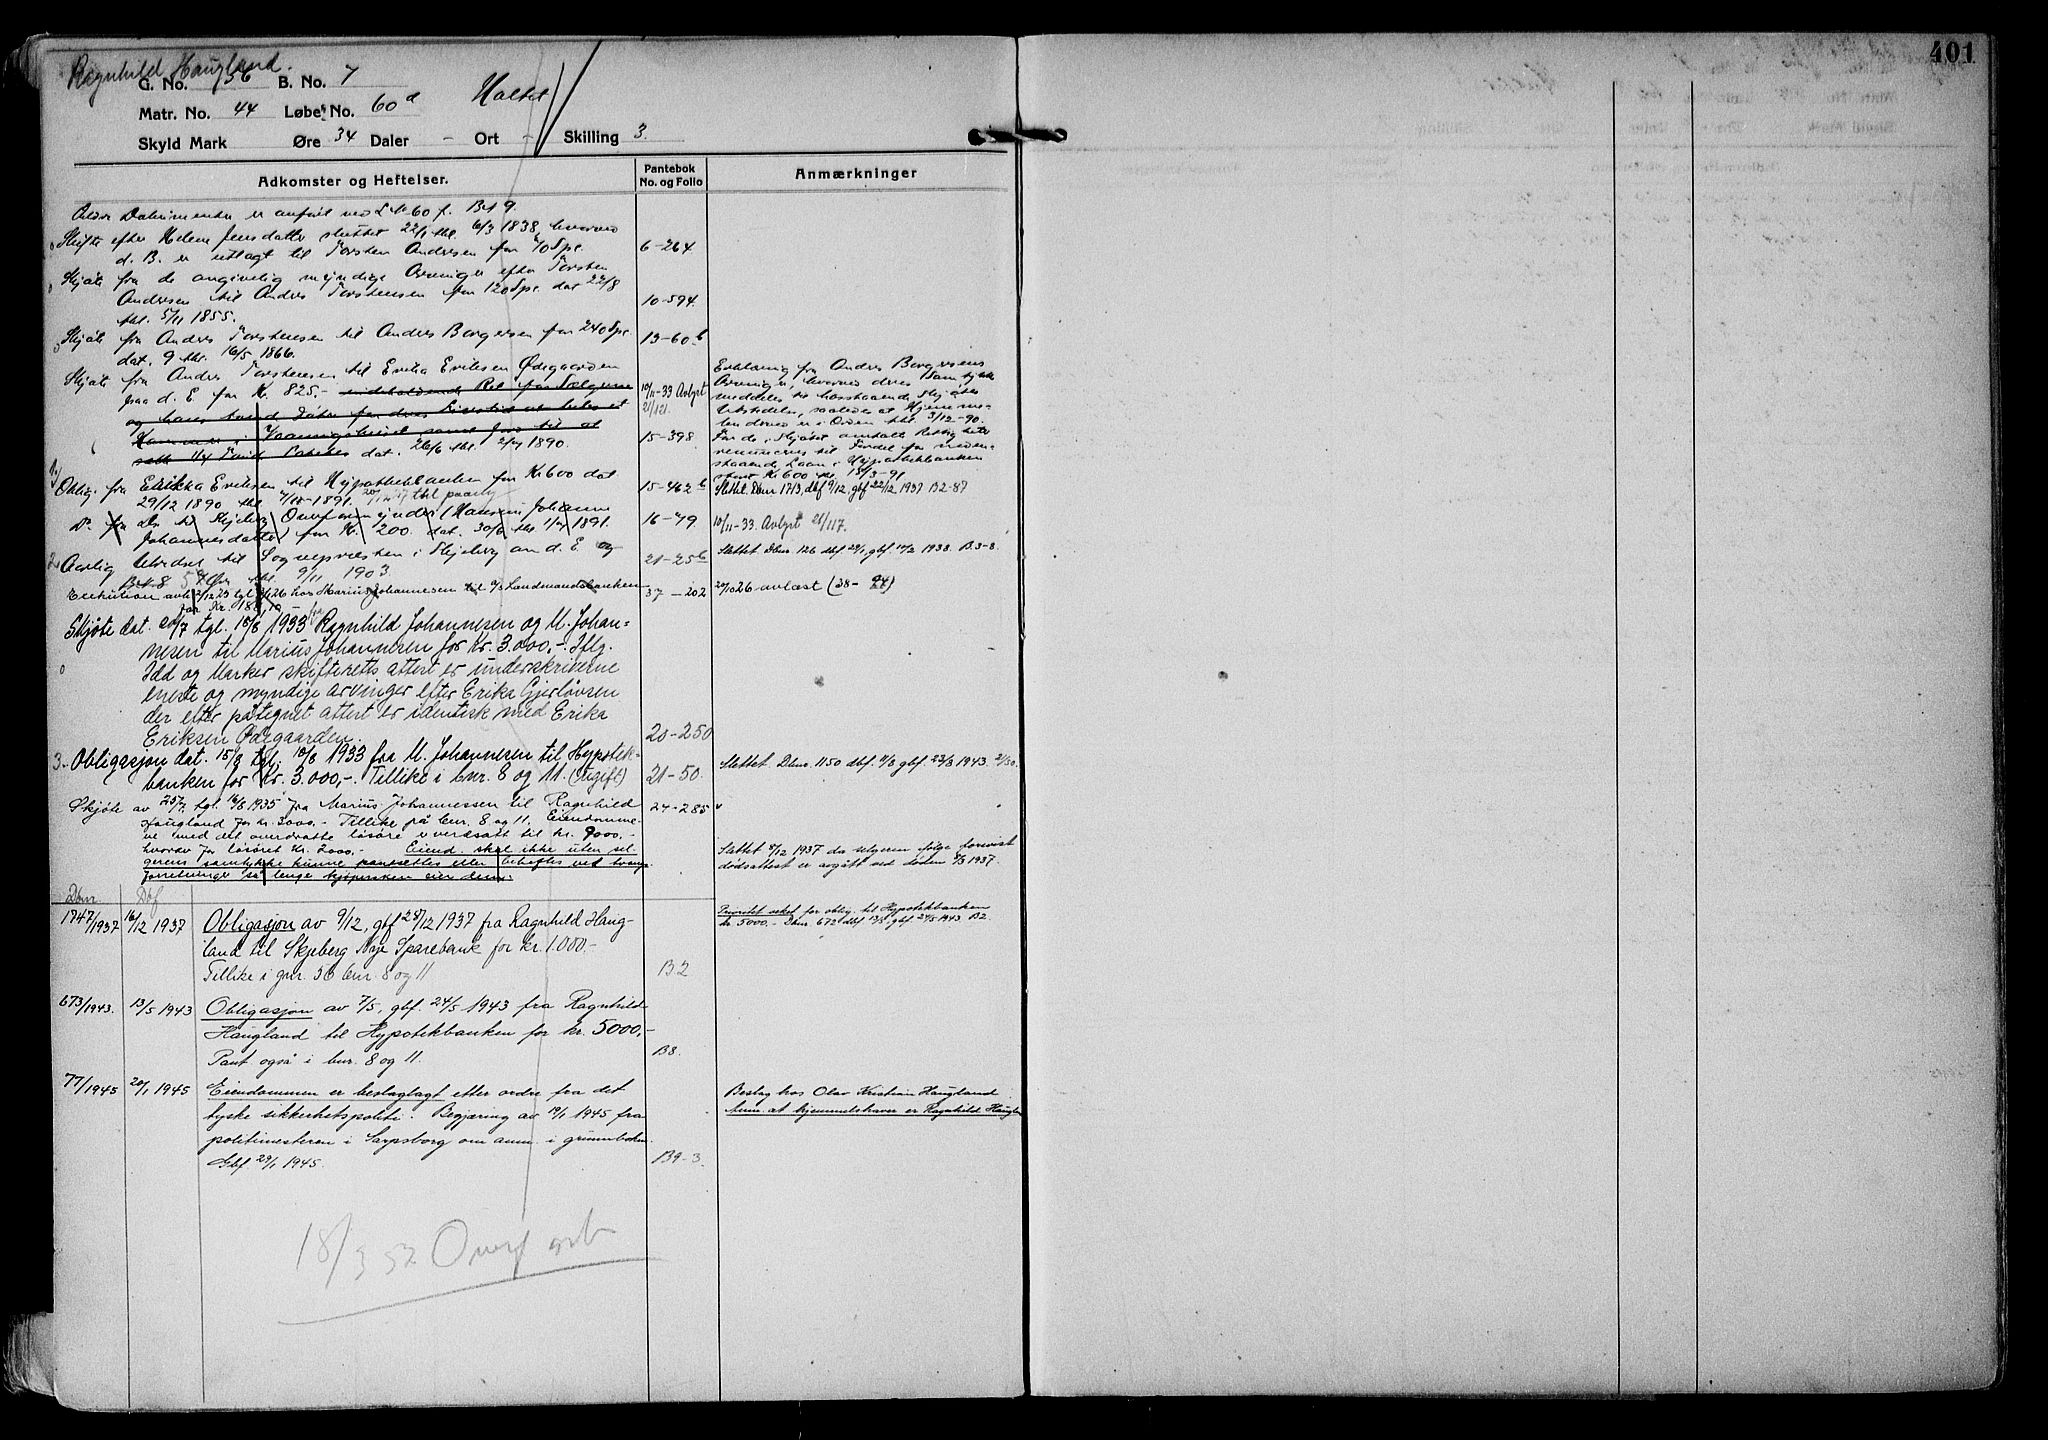 401
Ragnhild Haugland.
G. No. 36 B. No. 7
Matr. No. 44 Løbe No. 60 d Holtet
Skyld Mark Øre 34 Daler - Ort - Skilling 3.
Adkomster og Heftelser.
Pantebok
No. og Folio
Anmærkninger
Ældre Dokumenter er anført ved L No 60 f. B N 9.
Skifte efter Helene Jensdatter sluttet 22/1 thl. 6/3 1838, hvorved
d. B. er utlagt til Torsten Andersen for 70 Spe. 6-264
Skjøte fra de angivelig myndige Arvinger efter Torsten
Andersen til Anders Torstensen for 120 Spe. dat 22/8
thl. 5/11 1855. 10-594.
Skjøte fra Anders Torstensen til Anders Borgersen for 240 Spe.
dat. 9 thl. 16/5 1866. 13-60 b
Skjøte fra Anders Torstensen til Erika Eriksen Ødegaarden
paa d. E. for Kr. 825.- indeholdende Ret for Sælgerne
og hans Datter for deres Livstid at bebo et
Kammer i Vaaningshuset samt Jord til at
sætte 1/4 Tønde Poteter dat. 26/6 thl. 2/7 1890. 15-398
10/11-33 Avlyst
21/121.
Erklæring fra Anders Borgersens
Arvinger, hvorved deres Samtykke
meddeles til hosstaaende Skjøtes
Utstedelse, saaledes at Hjemme-
len derved er i Orden thl. 3/12-90.
For de i Skjøtet omtalte Rettigheter
renunceres til Fordel for neden-
staaende Laan i Hypothekbanken
stort Kr 600 thl. 13/3-91
1) Oblig. fra Erikka Eriksen til Hypothekbanken for Kr 600 dat
29/12 1890 thl. 1891. 15-462 b
Slettet. Dbnr 1713, dbf 9/12, gbf 22/12 1937 B2-87
Do fra ds til Skjeberg Overformynderi (Hansine Johanne
Johannesdatter) for Kr. 200. dat. 30/6 thl 1/7 1891. 16-79
10/11-33. Avlyst 21/117.
2 Aarlig Utredsel til Sognepresten i Skjeberg an d. E. og
B N 8 thl. 9/11 1903. 21-25 b
Slettet. Dbnr 126 dbf 29/1, gbf 17/2 1938. B.3-8.
Exekution avh. 2/12 25 tgl. 26 hos Marius Johannesen til A/S Landmandsbanken
for Kr. 37-202 20/10 26 avlæst (38-94)
Skjøte dat. 20/7 tgl. 15/8 1933 fra Ragnhild Johannesen og M. Johan-
nesen til Marius Johannesen for Kr. 3.000,-. Iflg.
Idd og Marker skifteretts attest er underskriverne
eneste og myndige arvinger efter Erika Gjerløvsen
der efter påtegnet attest er identisk med Erika
Eriksen Ødegaarden. 20-250
3- Obligasjon dat. 15/8 tgl. 18/8 1933 fra M. Johannesen til Hypotek-
banken for Kr. 3.000,-. Tillike i bnr. 8 og 11. (Ugift) 21-50.
Slettet. Dbnr. 1150 dbf. 11/8 gbf. 23/8 1943. 21/50.
Skjøte av 25/7 tgl. 16/8 1935 fra Marius Johannessen til Ragnhild
Haugland for kr. 3000.- Tillike på bnr. 8 og 11. Eiendomme-
ne med det overdratte løsøre er verdsatt til kr. 9000.-
hvorav for løsøret kr. 2000.- Eiend. skal ikke uten sel-
gerens samtykke kunne pantsettes eller beheftes ved tvangs
forretninger så lenge kjøpersken eier dem. 24-285
Slettet 8/12 1937 da selgeren ifølge forevist
dødsattest er avgått ved døden 4/3 1937.
Dbnr Dbf
1747/1937 16/12 1937 Obligasjon av 9/12, gbf 28/12 1937 fra Ragnhild Haug-
land til Skjeberg Nye Sparebank for kr. 1000.-
Tillike i gnr. 36 bnr. 8 og 11 B2
Prioritet veket for oblig. til Hypotekbanken
kr 5000.- Dbnr. 672 dbf 13/5 gbf. 24/5 1943. B2.
673/1943. 13/5 1943 Obligasjon av 7/5, gbf. 24/5 1943 fra Ragnhild
Haugland til Hypotekbanken for kr. 5000,-
Pant også i bnr. 8 og 11. B8.
77/1945 20/1 1945 Eiendommen er beslaglagt etter ordre fra det
tyske sikkerhetspoliti. Begjæring av 19/1 1945 fra
politimesteren i Sarpsborg om anm. i grunnboken.
Gbf. 29/1 1945. B9-3.
Beslag hos Olav Kristian Haugland.
Anm. at hjemmelshaver er Ragnhild Haugland
18/3 52 Overf